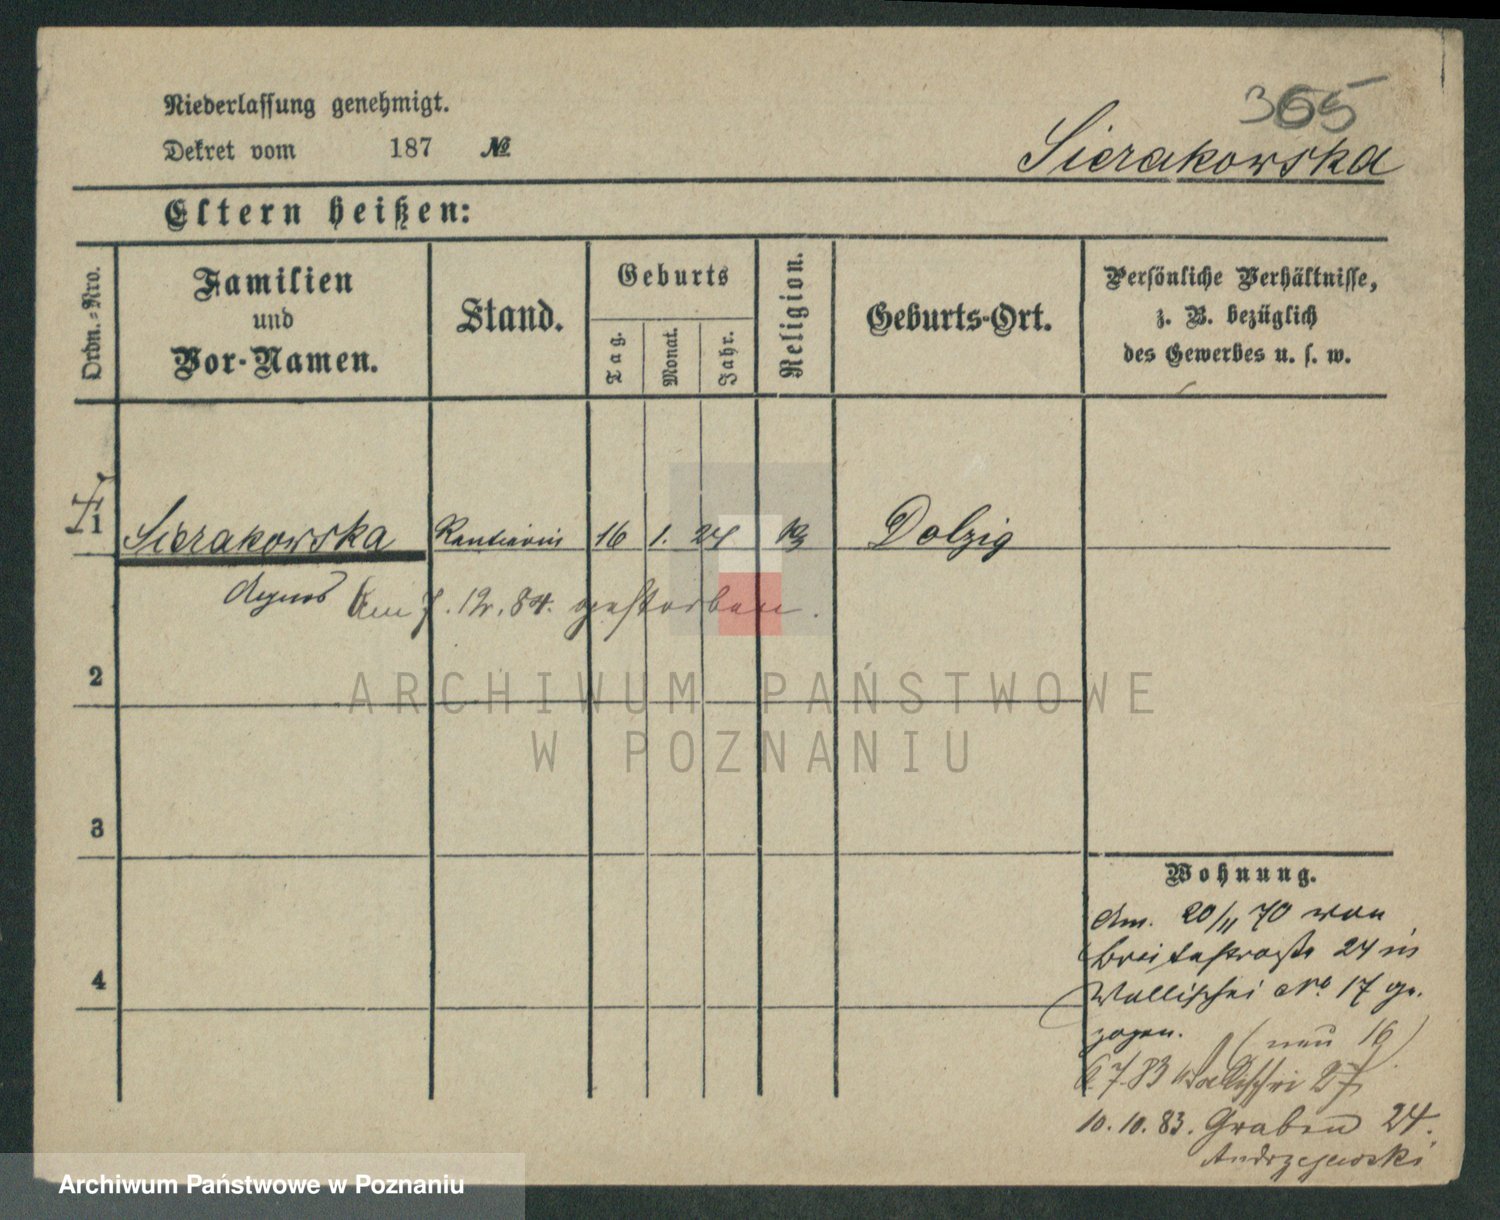 365
Niederlassung genehmigt.
Dekret vom 187 №
Sierakowska
Eltern heißen:
Ordn.-Nro.
Familien
und
Vor-Namen.
Stand.
Geburts
Tag.
Monat.
Jahr.
Religion.
Geburts-Ort.
Persönliche Verhältnisse,
z. B. bezüglich
des Gewerbes u. s. w.
1 Sierakowska 16 1. 24 Dolzig
Agnes Am 7. 12. 84. gestorben.
2
ARCHIWUM PAŃSTWOWE
W POZNANIU
3
4
Wohnung.
Am. 20/11 70 von
Breitestraße 24 in
Wallischei No 17 ge-
zogen. (neu 16)
6 7 83 Wallischei 27
10. 10. 83. Graben 24.
Andrzejewski
Archiwum Państwowe w Poznaniu